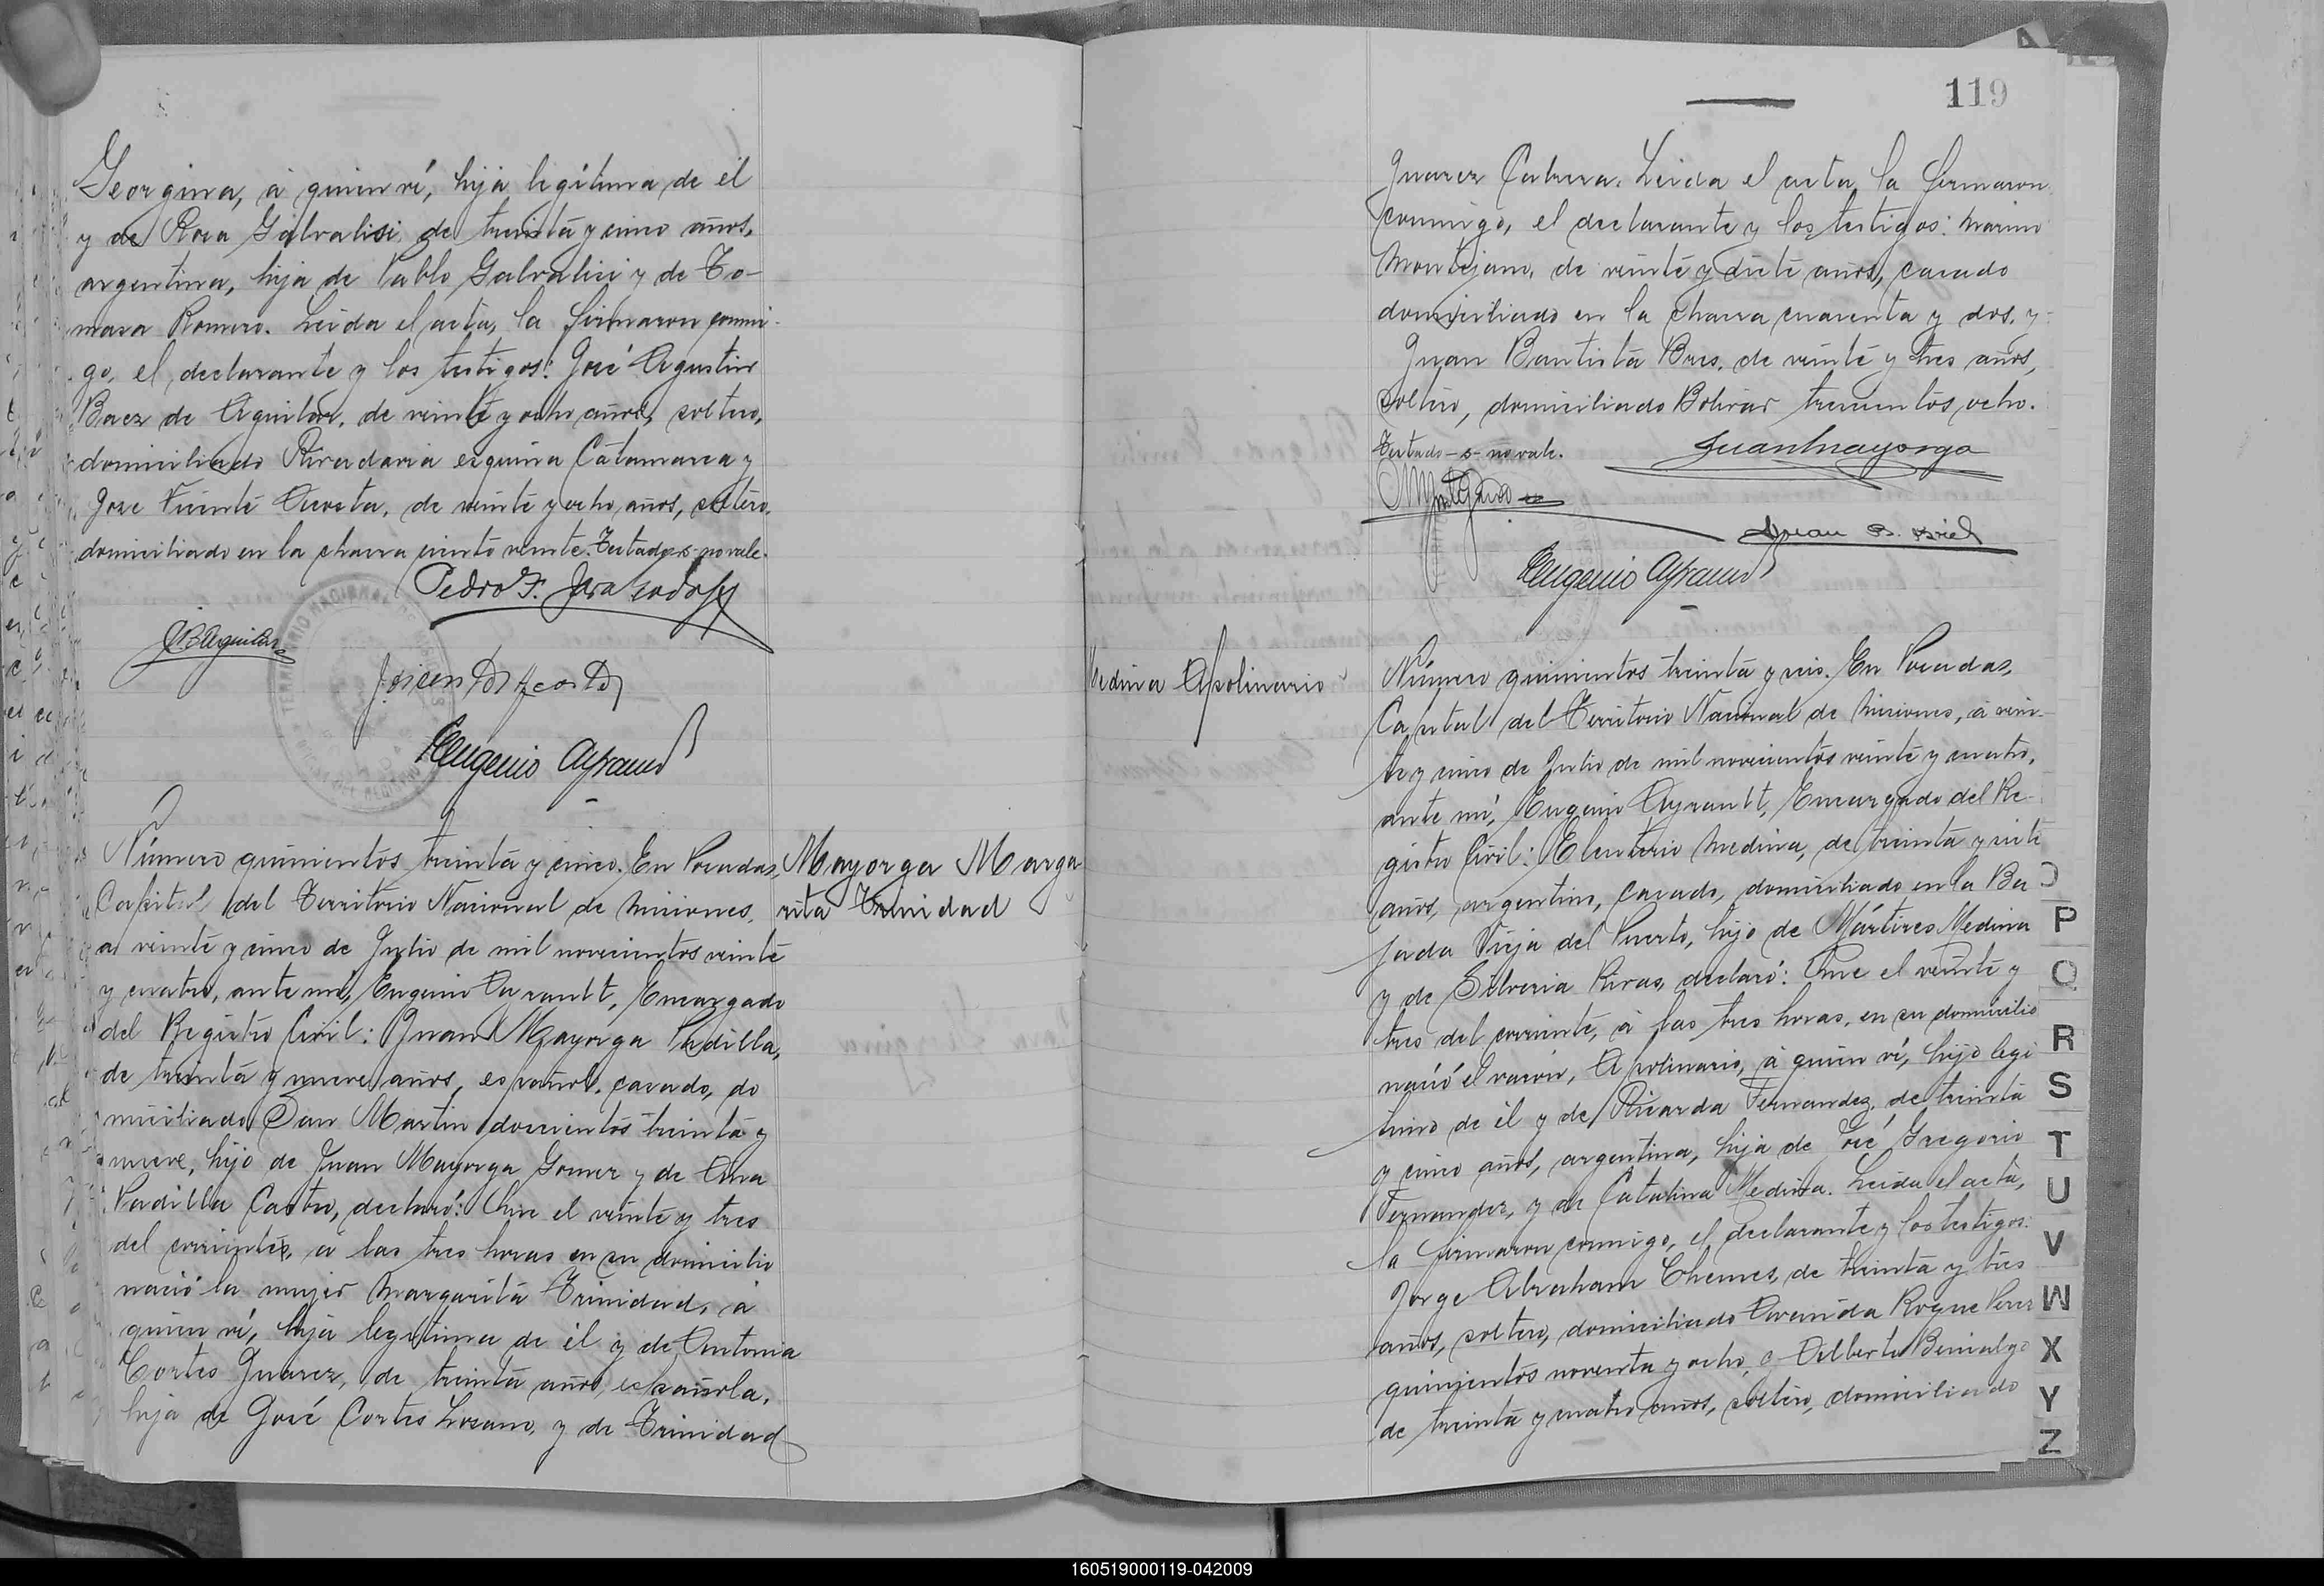 Georgina, á quien ví, hija legítima de él
y de Rosa Galvalisi, de treinta y cinco años,
argentina, hija de Pablo Galvalisi y de To-
masa Romero. Leida el acta, la firmaron conmi-
go, el declarante y los testigos: José Agustin
Baez de Aguilar, de veinte y ocho años, soltero,
domiciliado Rivadavia esquina Catamarca y
Jose Vicente Acosta, de veinte y ocho años, soltero,
domiciliado en la chacra ciento veinte. Testado-s-no vale.
Pedro F.
JBAguilar
Eugenio Ayrault
Número quinientos treinta y cinco. En Posadas,
Capital del Territorio Nacional de Misiones,
a veinte y cinco de Julio de mil novecientos veinte
y cuatro, ante mí, Eugenio Ayrault, Encargado
del Registro Civil: Juan Mayorga Padilla,
de treinta y nueve años, español, casado, do
miciliado San Martin doscientos treinta y
nueve, hijo de Juan Mayorga Gomez y de Ana
Padilla Castro, declaró: Que el veinte y tres
del corrientes, á las tres horas en su domicilio
nació la mujer Margarita Trinidad, á
quien ví, hija legítima de él y de Antonia
Cortes Juarez, de treinta años, española,
hija de José Cortes Lozano, y de Trinidad
Mayorga Marga
rita Trinidad
119
Juarez Cabrera. Leida el acta, la firmaron
conmigo, el declarante y los testigos: Marino
de veinte y siete años, casado
domiciliado en la chacra cuarenta y dos, y
Juan Bautista Bres, de veinte y tres años,
soltero, domiciliado Bolivar trescientos ocho.
Testado-s-no vale.
Juan Mayorga
Juan B.
Eugenio Ayrault
Medina Apolinario
Número quinientos treinta y seis. En Posadas,
Capital del Territorio Nacional de Misiones, á vein-
te y cinco de Julio de mil novecientos veinte y cuatro,
ante mí, Eugenio Ayrault, Encargado del Re-
gistro Civil: Eleuterio Medina, de treinta y siete
años, argentino, casado, domiciliado en la Ba
jada Vieja del Puerto, hijo de Mártires Medina
y de Silveria Rivas, declaró: Que el veinte y
tres del corriente, á las tres horas, en su domicilio
nació el varón, Apolinario, á quien ví, hijo legi
timo de él y de Ricarda Fernandez, de treinta
y cinco años, argentina, hija de José Gregorio
Fernandez, y de Catalina Medina. Leida el acta,
la firmaron conmigo, el declarante y los testigos:
Jorge Abraham Chemes, de treinta y tres
años, soltero, domiciliado Avenida Roque Perez
quinientos noventa y ocho, y Adilberto Benialgo
de treinta y cuatro años, soltero, domiciliado
P
Q
R
S
T
U
V
W
X
Y
Z
160519000119-042009